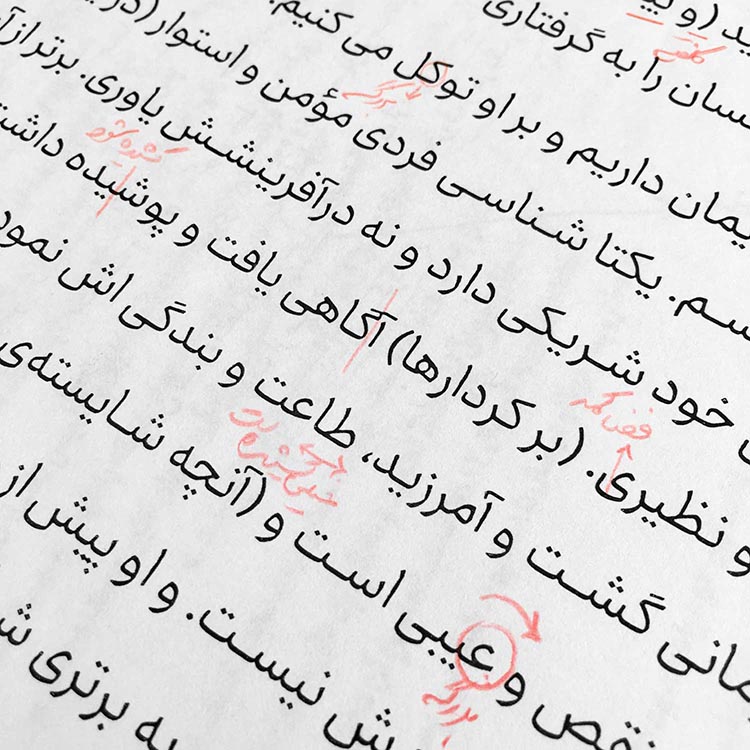 ید (و
نسان را به گرفتاری
یمان داریم و بر او توکل می کنیم.
سم. یکتا شناسی فردی مؤمن و استوار (در
خود شریکی دارد و نه درآفرینشش یاوری. برتر ازآ
و نظیری. (بر کردارها) آگاهی یافت و پوشیده داشت
مانی گشت و آمرزید، طاعت و بندگی اش نمود
نقص و عیبی است و (آنچه شایسته‌ی
ش نیست. و او پیش از
به برتری ش